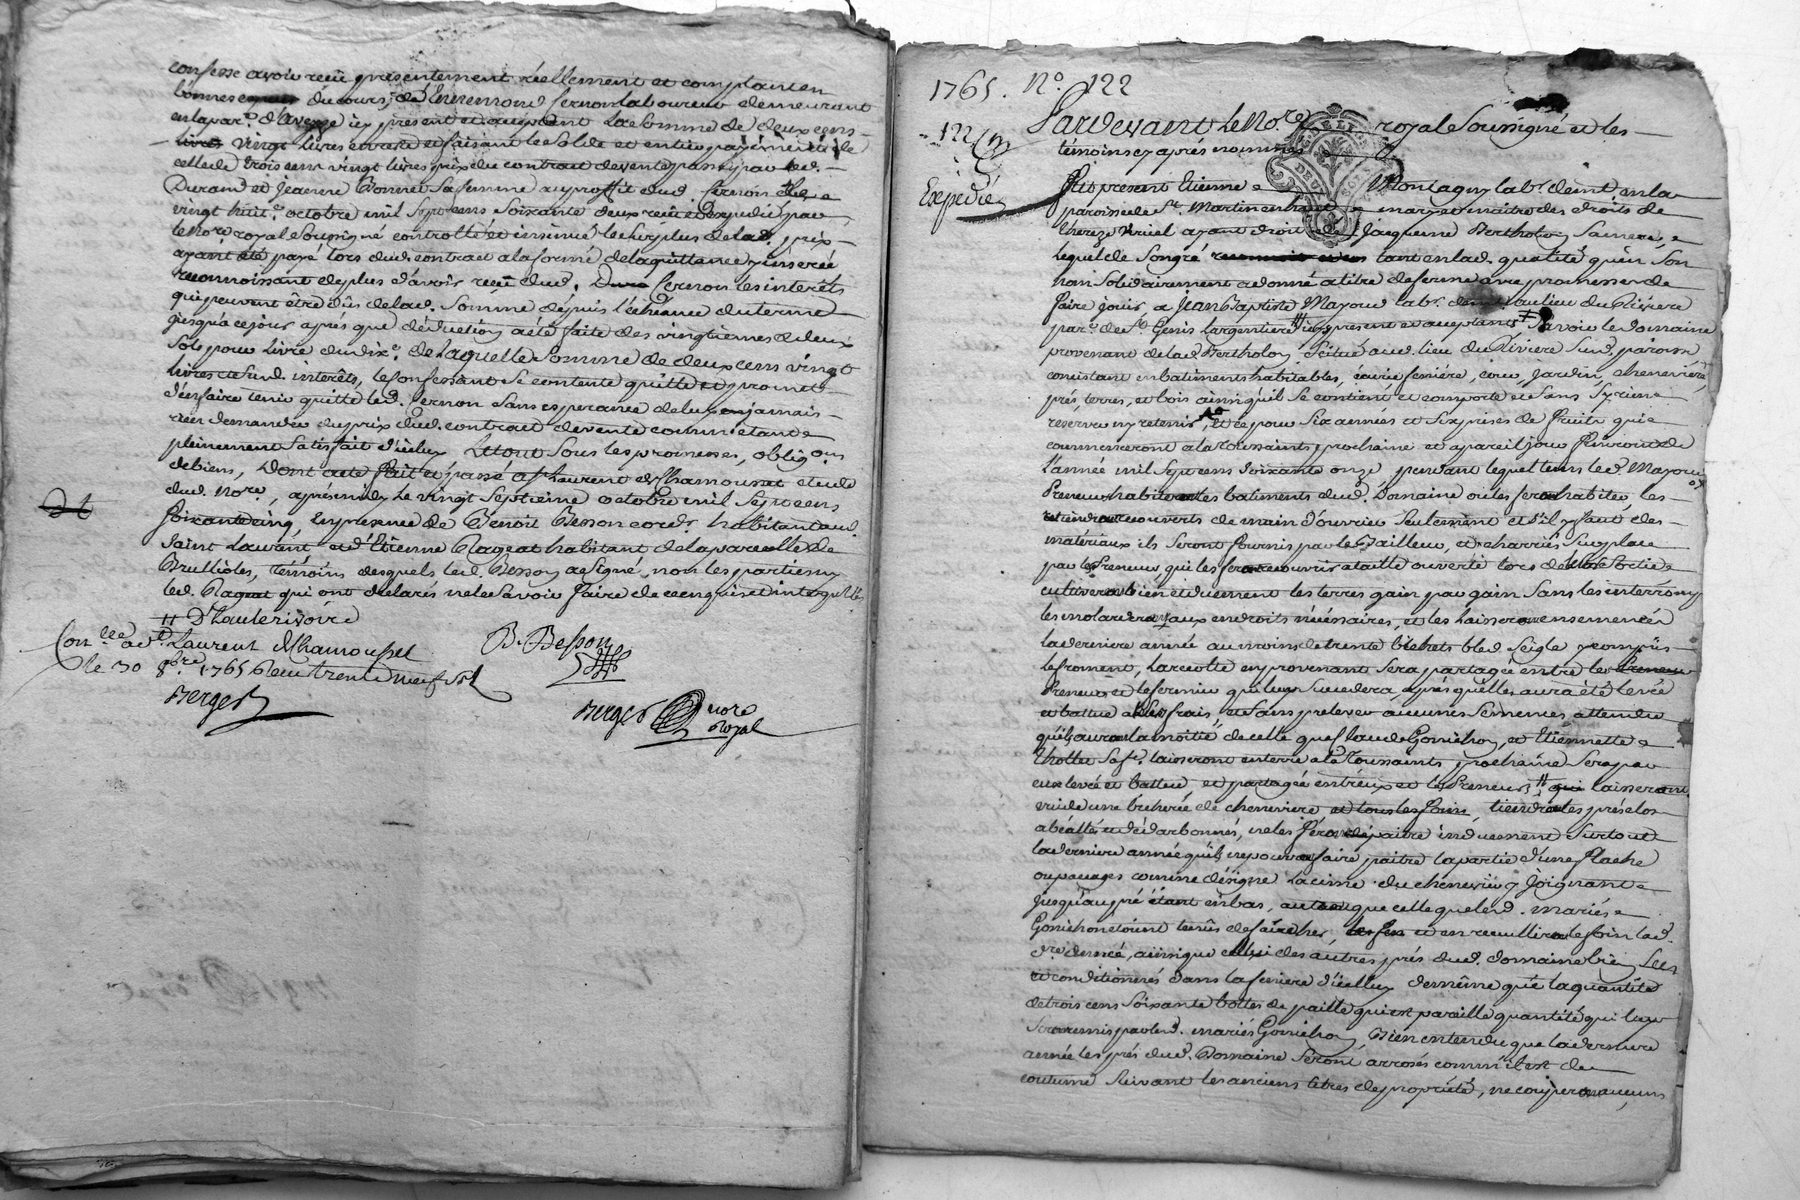 confesse avoir reçu présentement réellement et comptant en
bonnes du cours, de Ennemond fernon laboureur demeurant
en la par.e d'Aveize icy présent et acceptant La somme de deux cens
vingt livres en reste et faisant le solde et entier payement de
celle de trois cens vingt livres prix du contrat de vente passé par led.
Durand et Jeanne Bonnet sa femme au proffit dud. fernon le
vingt huit.e octobre mil sept cens soixante deux reçu et expédié par
le No.re royal soussigné controllé et insinué le surplus delad. prix
ayant été payé lors dud. contrat a la forme de la quittance y inserée
reconnoissant de plus d'avoir reçu dud. fernon les interêts
qui peuvent être dûs de lad. somme dépuis l'échéance du terme
jusqu'a ce jour aprés que déduction a été faite des vingtiemes et deux
sols pour livre du dix.e de laquelle somme de deux cens vingt
livres et sud. interêts, le confessant se contente quitte et promet
d'en faire tenir quitte led. fernon sans esperance de luy en jamais
rien demander du prix dud. contrat de vente comm'etant
pleinement satisfait d'icelux Le tout sous les promesses, oblig.ons
de biens, Dont acte fait et passé a S.t Laurent de Chamousset etude
dud. No.re, aprés midy Le vingt septieme octobre mil sept cens
soixante cinq, en presence de Benoit Besson cord.r habitant aud.
Saint Laurent et d'Etienne Rageat habitant de la paroisse de
Brullioles, témoins desquels led. Besson a signé, non les parties ny
led. Rageat qui ont déclarés ne le savoir faire de ce enquis et interpellés
D'hauterivoire
Con.lle a S.t Laurent de Chamousset
le 30 8bre 1765 Reçu trente neuf s.
Berger
B. Besson
Berger nore
Royal
1765. N.o 122
122
Expedié
Pardevant Le No.re royal soussigné et les
témoins cy aprés nommés
fut présent Etienne Montagny lab.r dem.t en la
paroisse de S.t Martin en haut mary et maitre des droits de
Thereze Viriel ayant droit de Jacqueme Bertholon sa mere,
Lequel de son gré tant en lad. qualité qu'en son
nom solidairement a donné a titre de ferme avec promesse de
faire jouir, a Jean Baptiste Mayoud lab.r au lieu du Riviere
par.e de S.t Genis Largentiere icy présent et acceptant, Savoir le Domaine
provenant de lad. Bertholon, scitué aud. lieu du Riviere sud. paroisse
consistant en batiments habitables, écurie feniére, cour, jardin, cheneviere,
prés terres, et bois ainsi qu'il se contient et comporte et sans y rien
réserver ny retenir, et ce pour six années et six prises de fruits qui
commenceront a la toussaints prochaine et a pareil jour finiront de
l'année mil sept cens soixante onze, pendant lequel tems led. Mayoud
Preneur habitera les batiments dud. Domaine ou les fera habiter, les
couverts de main d'ouvrier seulement et s'il y faut des
matériaux ils seront fournis par le Bailleur, et charriés sur place
par le Preneur, qui les fera recouvrir a taille ouverte lors de leur sortie
cultivera bien et duement les terres gain par gain sans les interrompre
les molardera aux endroits nécessaires, et les laissera ensemencées
la derniere année au moins de trente bichets bled seigle y compris
le froment, La recolte en provenant sera partagée entre le
Preneur et le fermier qui luy succedera, aprés qu'elle aura été levée
et battue a frais, et sans prelever aucunes semences attendu
qu'il aura la moitié de celle que Claude Gonichon, et Etiennette
Thollet sa fe. laisseront enterre a la toussaints prochaine sera par
eux levée et battue, et partagée entr'eux et le Preneur laissera
vuide une bicherée de cheneviere tiendra les prés clos
abéallés et dédarbonnés, ne les fera dépaitre induement surtout
la derniere année qu'il ne pourra faire paitre la partie d'une flache
ou pacages comme désigne la cime du chenevier y joignant
jusqu'au pré étant en bas, que celle que lesd. mariés
Gonichon étoient tenûs de faire et en recuillira le foin lad.
d.re année, ainsi que celluy des autres prés dud. domaine bien secs
et conditionnés dans la feniere d'icellux de même que la quantité
de trois cens soixante bottes de paille qui est pareille quantité qui luy
sera remis par lesd. mariés Gonichon Bien entendu que la derniere
année les prés dud. Domaine seront arrosés comm'il est de
coutume suivant les anciens titres de propriété, ne coupera aucuns